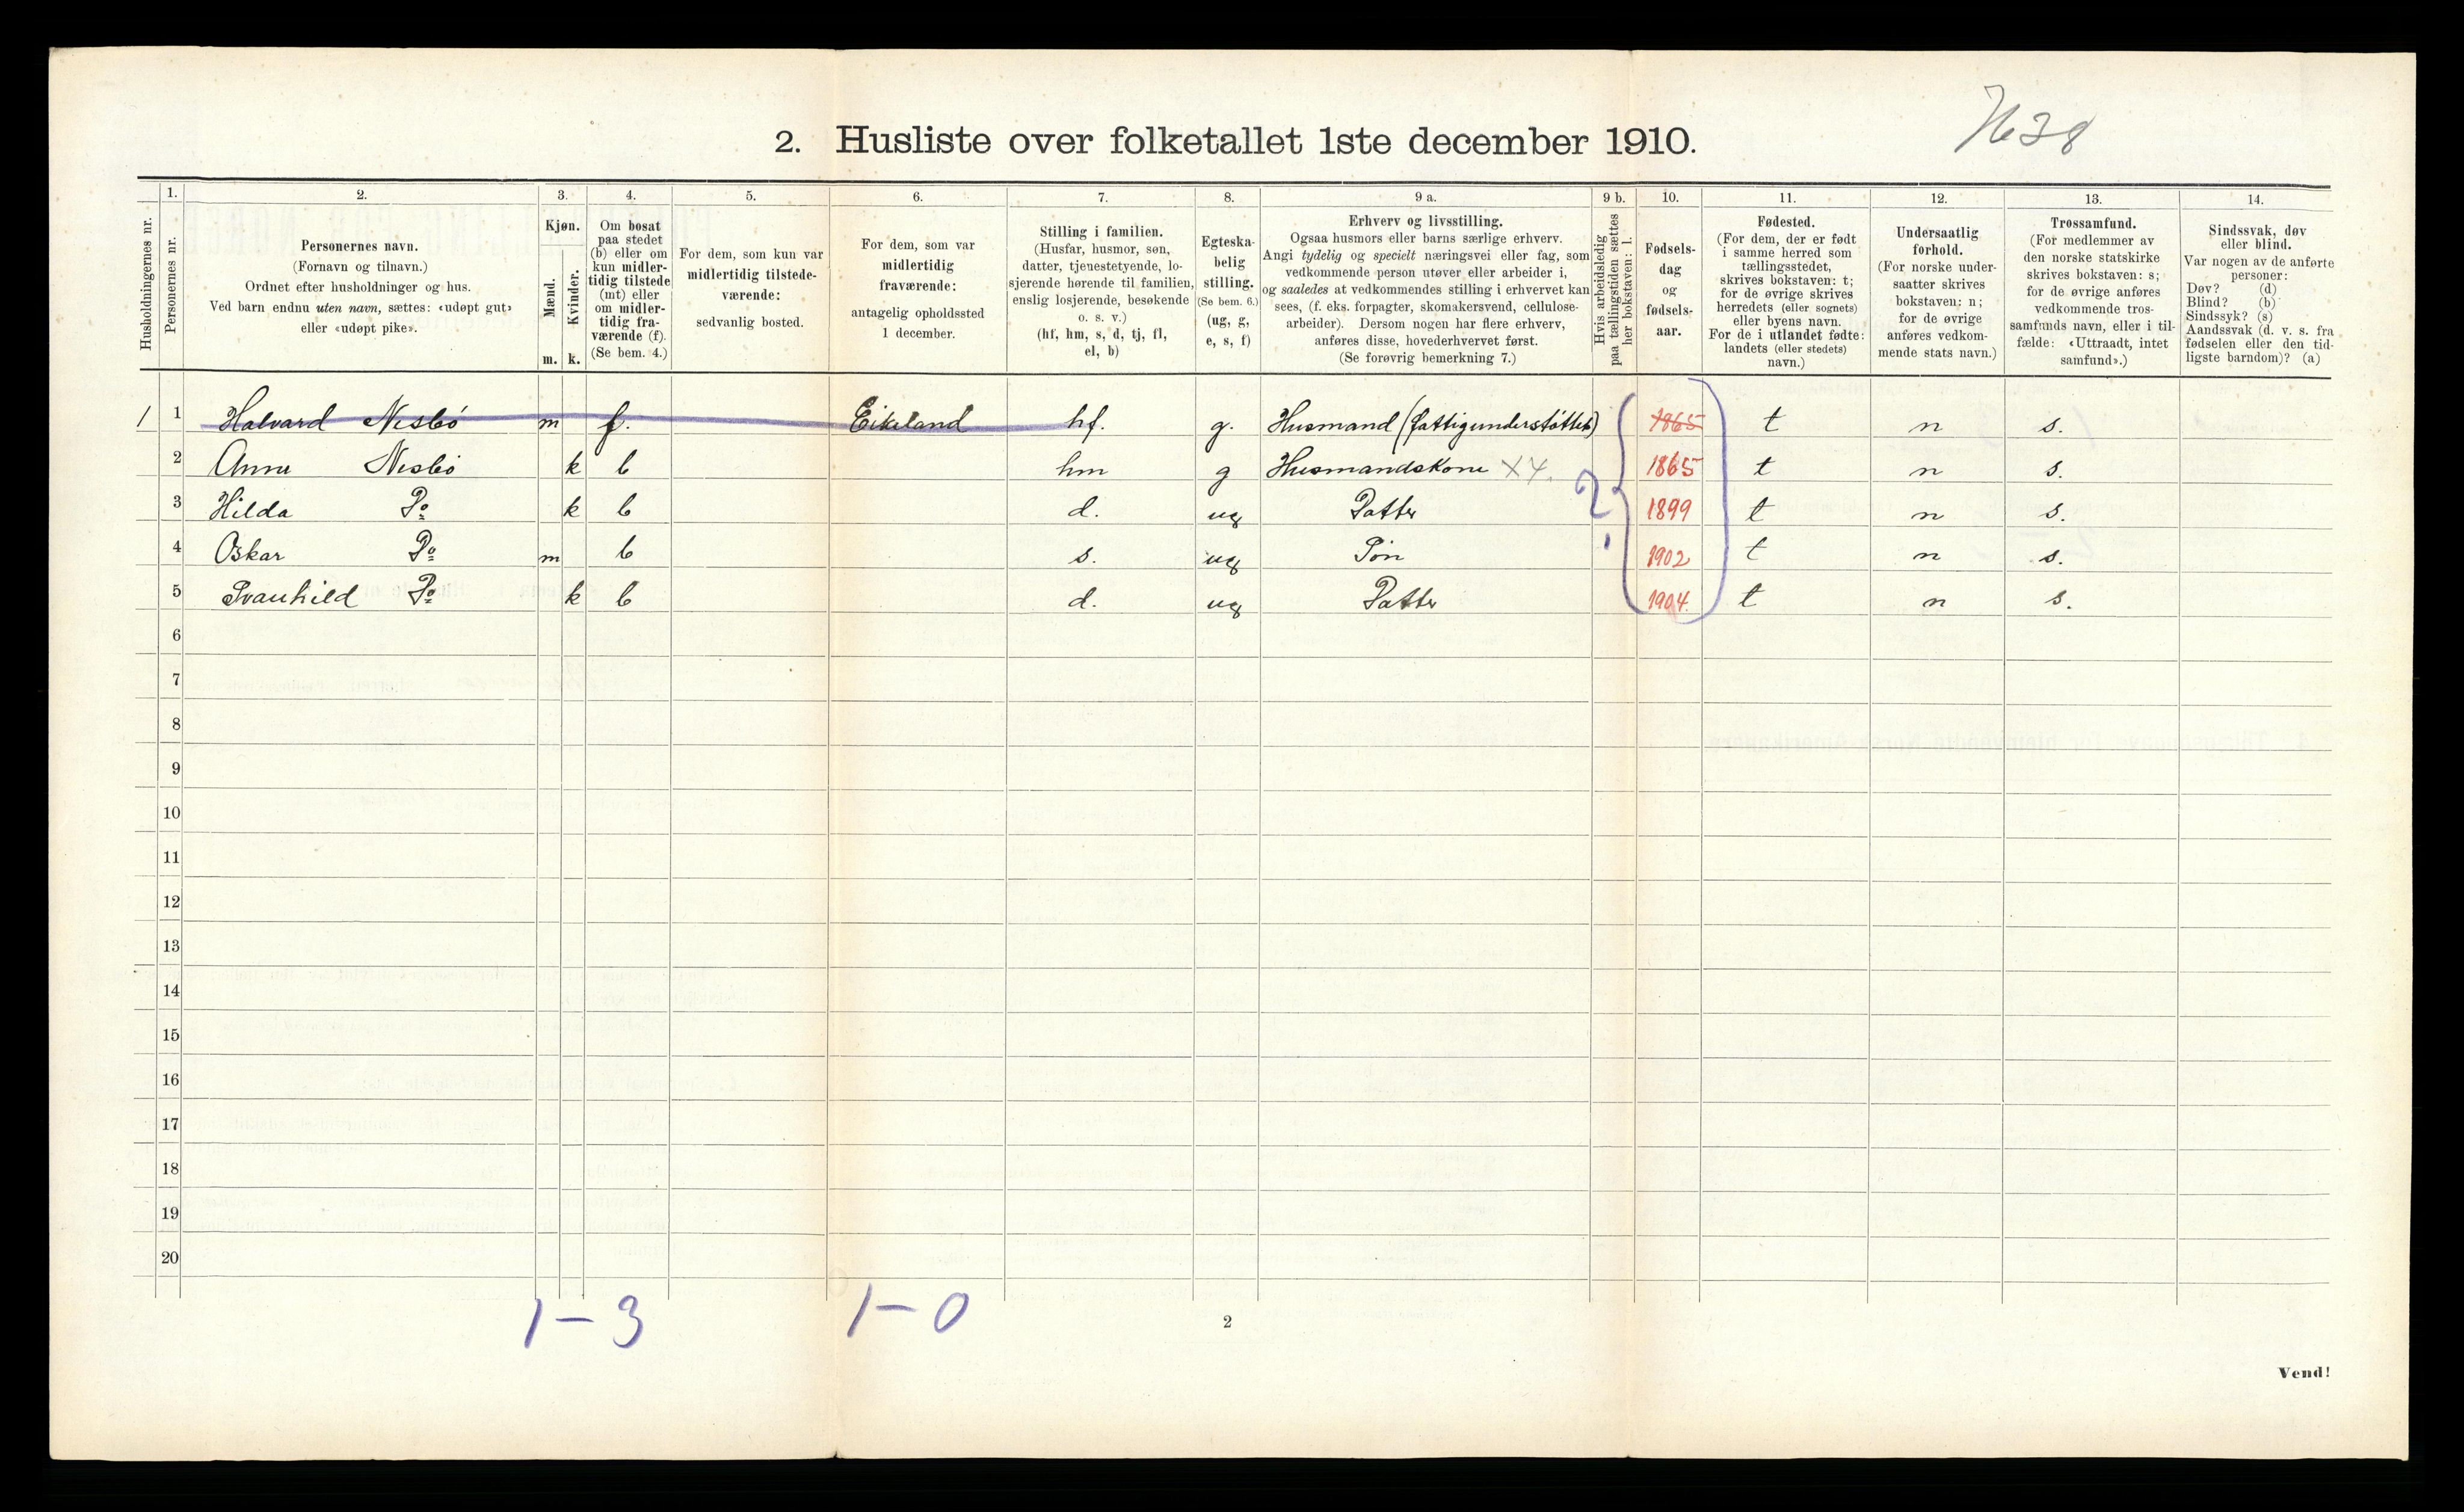 2. Husliste over folketallet 1ste december 1910.
Husholdningernes nr.
1.
Personernes nr.
2.
Personernes navn.
(Fornavn og tilnavn.)
Ordnet efter husholdninger og hus.
Ved barn endnu uten navn, sættes: «udøpt gut»
eller «udøpt pike».
3.
Kjøn.
Mænd.
Kvinder.
m. k.
4.
Om bosat
paa stedet
(b) eller om
kun midler-
tidig tilstede
(mt) eller
om midler-
tidig fra-
værende (f).
(Se bem. 4.)
5.
For dem, som kun var
midlertidig tilstede-
værende:
sedvanlig bosted.
6.
For dem, som var
midlertidig
fraværende:
antagelig opholdssted
1 december.
7.
Stilling i familien.
(Husfar, husmor, søn,
datter, tjenestetyende, lo-
sjerende hørende til familien,
enslig losjerende, besøkende
o. s. v.)
(hf, hm, s, d, tj, fl,
el, b)
8.
Egteska-
belig
stilling.
(Se bem. 6.)
(ug, g,
e, s, f)
9 a.
Erhverv og livsstilling.
Ogsaa husmors eller barns særlige erhverv.
Angi tydelig og specielt næringsvei eller fag, som
vedkommende person utøver eller arbeider i,
og saaledes at vedkommendes stilling i erhvervet kan
sees, (f. eks. forpagter, skomakersvend, cellulose-
arbeider). Dersom nogen har flere erhverv,
anføres disse, hovederhvervet først.
(Se forøvrig bemerkning 7.)
9 b.
Hvis arbeidsledig
paa tællingstiden sættes
her bokstaven: l.
10.
Fødsels-
dag
og
fødsels-
aar.
11.
Fødested.
(For dem, der er født
i samme herred som
tællingsstedet,
skrives bokstaven: t;
for de øvrige skrives
herredets (eller sognets)
eller byens navn.
For de i utlandet fødte:
landets (eller stedets)
navn.)
12.
Undersaatlig
forhold.
(For norske under-
saatter skrives
bokstaven: n;
for de øvrige
anføres vedkom-
mende stats navn.)
13.
Trossamfund.
(For medlemmer av
den norske statskirke
skrives bokstaven: s;
for de øvrige anføres
vedkommende tros-
samfunds navn, eller i til-
fælde: «Uttraadt, intet
samfund».)
14.
Sindssvak, døv
eller blind.
Var nogen av de anførte
personer:
Døv? (d)
Blind? (b)
Sindssyk? (s)
Aandssvak (d. v. s. fra
fødselen eller den tid-
ligste barndom)? (a)
1 1 Halvard Nesbö m f. Eikeland hf. g. Husmand (fattigunderstöttet) 1865 t n s.
2 Anna Nesbö k b hm g Husmandskone X4. 1865 t n s.
3 Hilda Do k b d. ug Datter 1899 t n s.
4 Oskar Do m b s. ug Sön ? 1902 t n s.
5 Svanhild Do k b d. ug Datter 1904. t n s.
6
7
8
9
10
11
12
13
14
15
16
17
18
19
20
1 – 3 1 – 0
2
Vend!